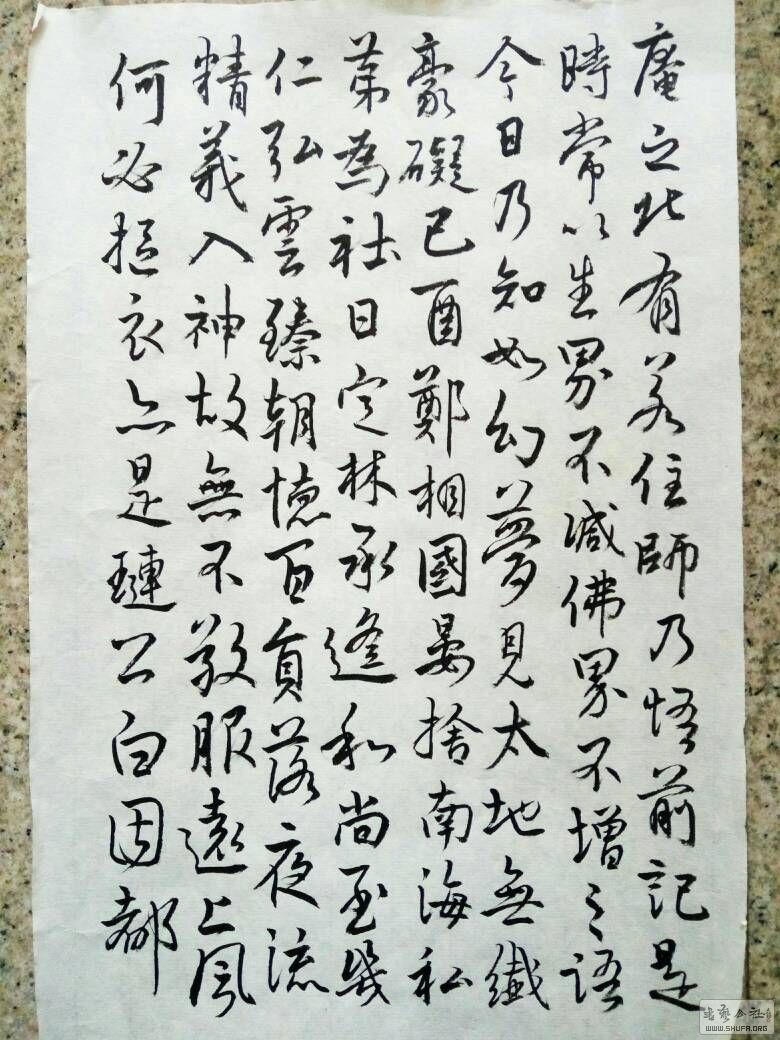 庵之北有若住師乃悟前記是
時常以生界不減佛界不增之語
今日乃知如幻夢見大地無纖
豪礙已酉鄭相國晏捨南海私
第為社日定林承遂和尚至幾
仁弘雲臻朝憶百員落夜流
精義入神故無不敬服遠上風
何必摳衣亦是璉公白因都
WWW.SHUFA.ORG